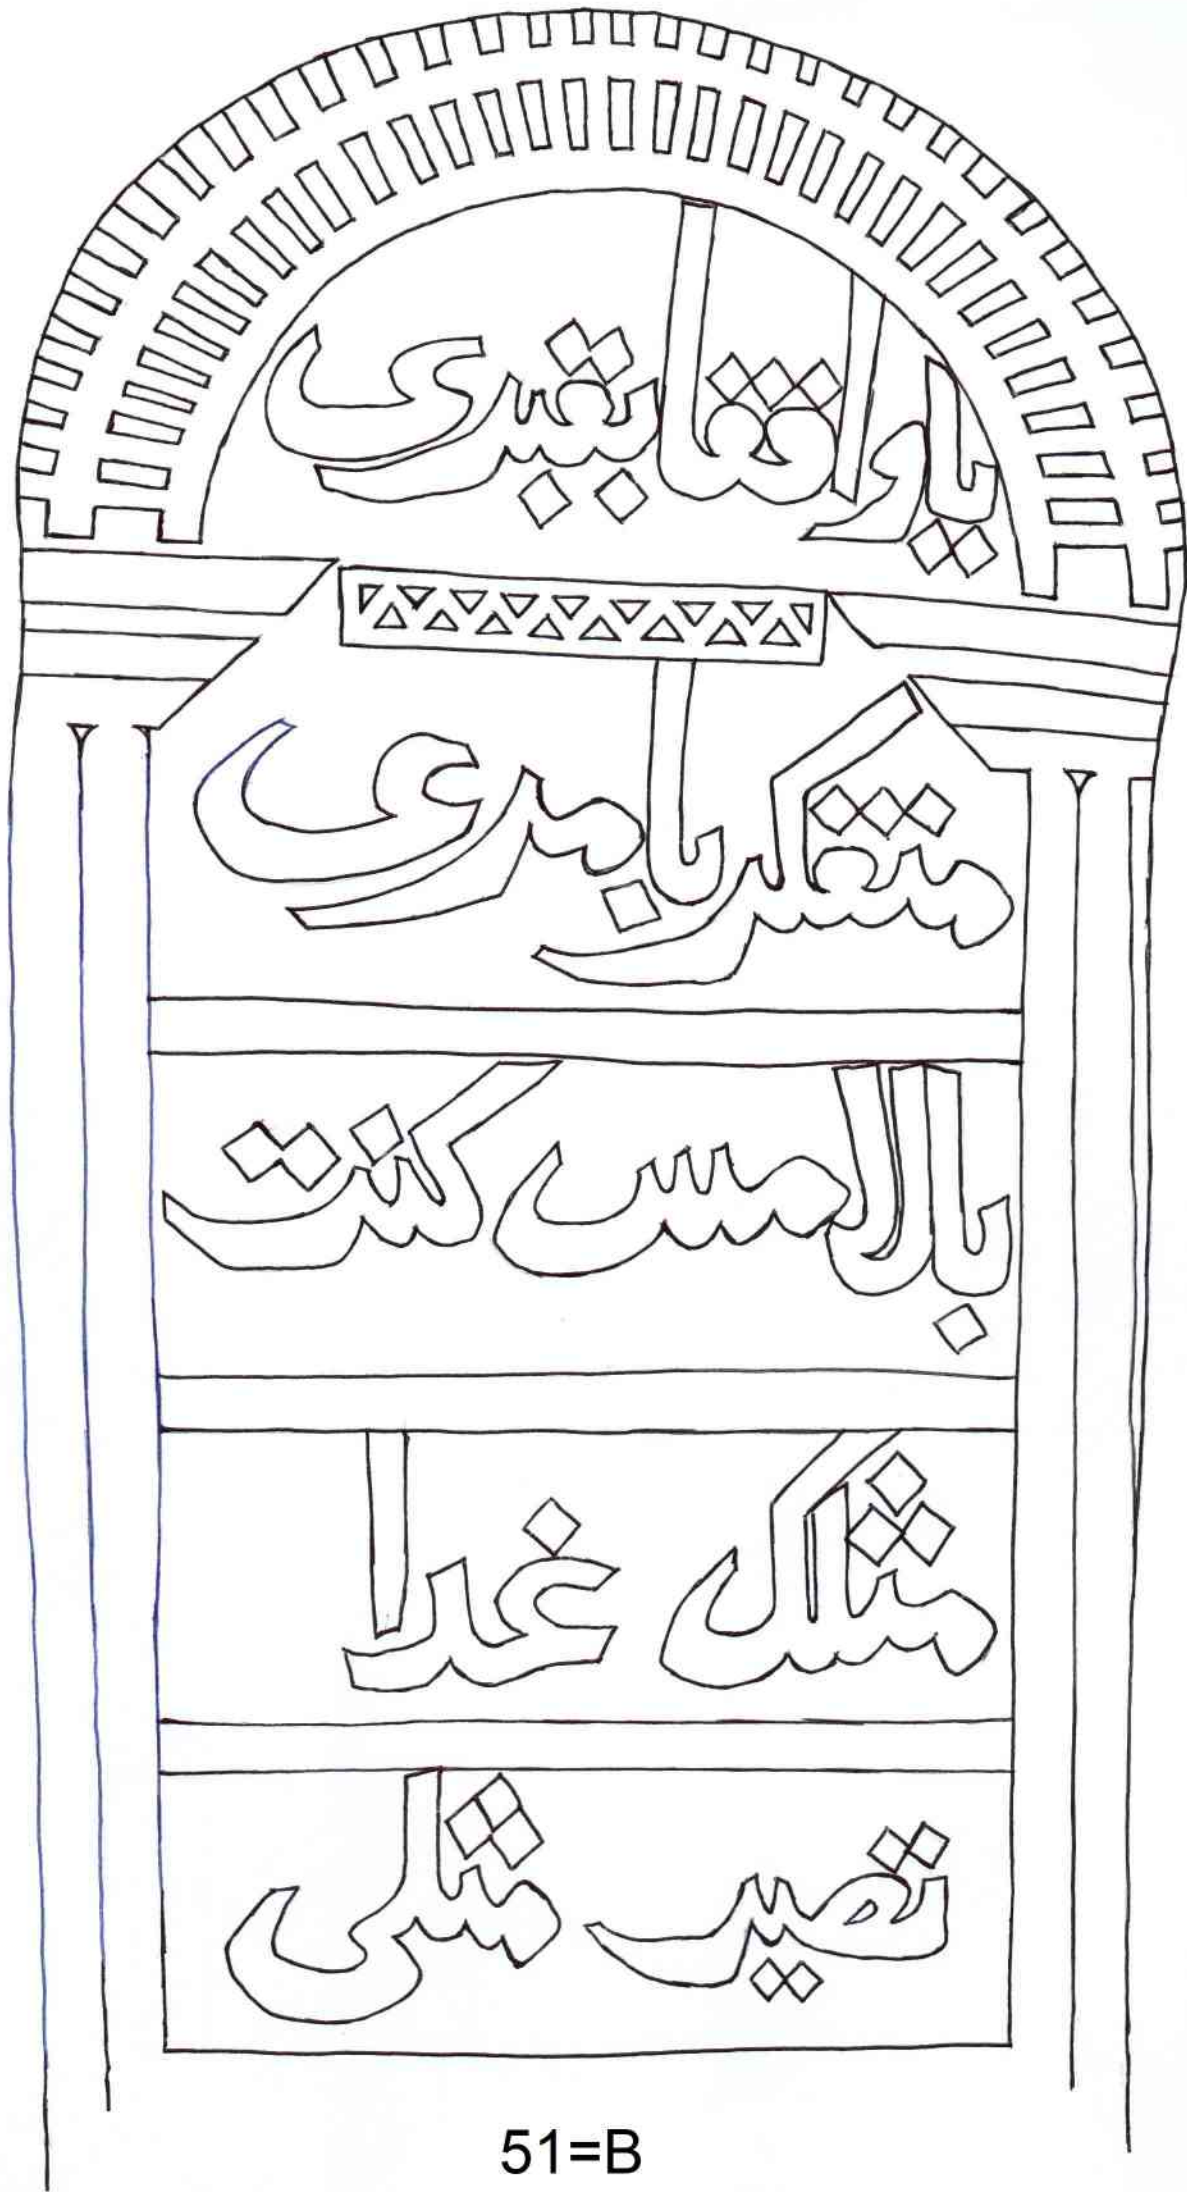 يا واقفا بقبري
متفكرا بامري
بالامس كنت
مثلك غدا
تصير مثلي
51=B